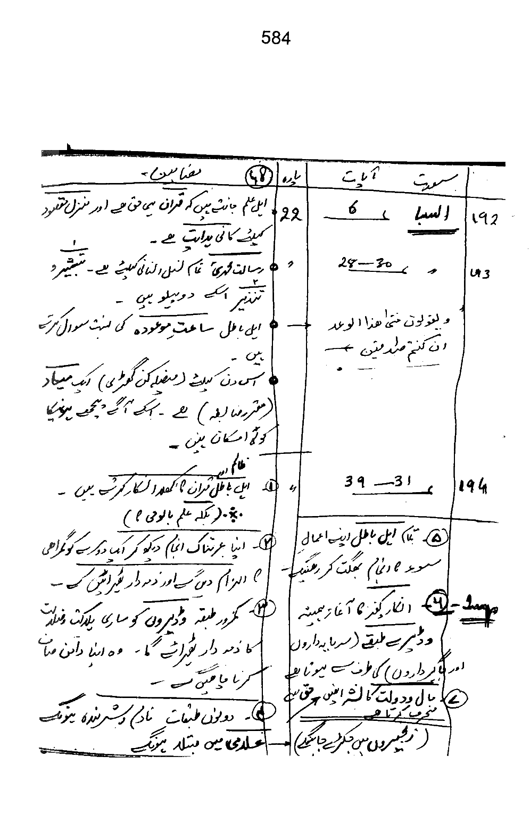 584
سورت آیات پارہ مضامین -
192 السبا 6 22 اہل علم جانتے ہیں کہ قرآن ہی حق ہے اور منزل مقصود
کیلئے کافی ہدایت ہے -
193 " 28—30 " رسالت محمدیؐ تمام نسل انسانی کیلئے ہے - تبشیر و
تنذیر اسکے دو پہلو ہیں -
ویقولون متی ھذا الوعد اہل باطل ساعت موعودہ کی نسبت سوال کرتے
ان کنتم صادقین ہیں -
اس دن کیلئے (فیصلہ کن گھڑی) ایک میعاد
(مقررہ ) ہے - اسکے آگے پیچھے ہونیکا
کوئی امکان نہیں -
194 31—39 " ① ظالم اور اہل باطل قرآن کا کھلا انکار کرتے ہیں -
(بلکہ علم بالوحی کا)
② - اپنا عبرتناک انجام دیکھ کر ایک دوسرے کو گمراہی
کا الزام دیں گے اور ذمہ دار ٹھہرائیں گے -
③ - کمزور طبقہ وڈیروں کو ساری ہلاکت و
کا ذمہ دار ٹھہرائے گا - وہ اپنا دامن صاف
کرنا چاہیں گے -
④ - دونوں طبقات نادم و شرمندہ ہونگے
عذاب میں مبتلا ہونگے
⑤ - تمام اہل باطل اپنے اعمال
کا انجام بھگت کر رہینگے -
Imp - ⑥ - انکار کفر کا آغاز ہمیشہ
وڈیرے طبقے (سرمایہ داروں
اور جاگیرداروں) کی طرف سے ہوتا ہے
⑦ - مال و دولت کا نشہ انہیں حق سے
منحرف کرتا ہے
(زنجیروں میں جکڑے جائینگے)